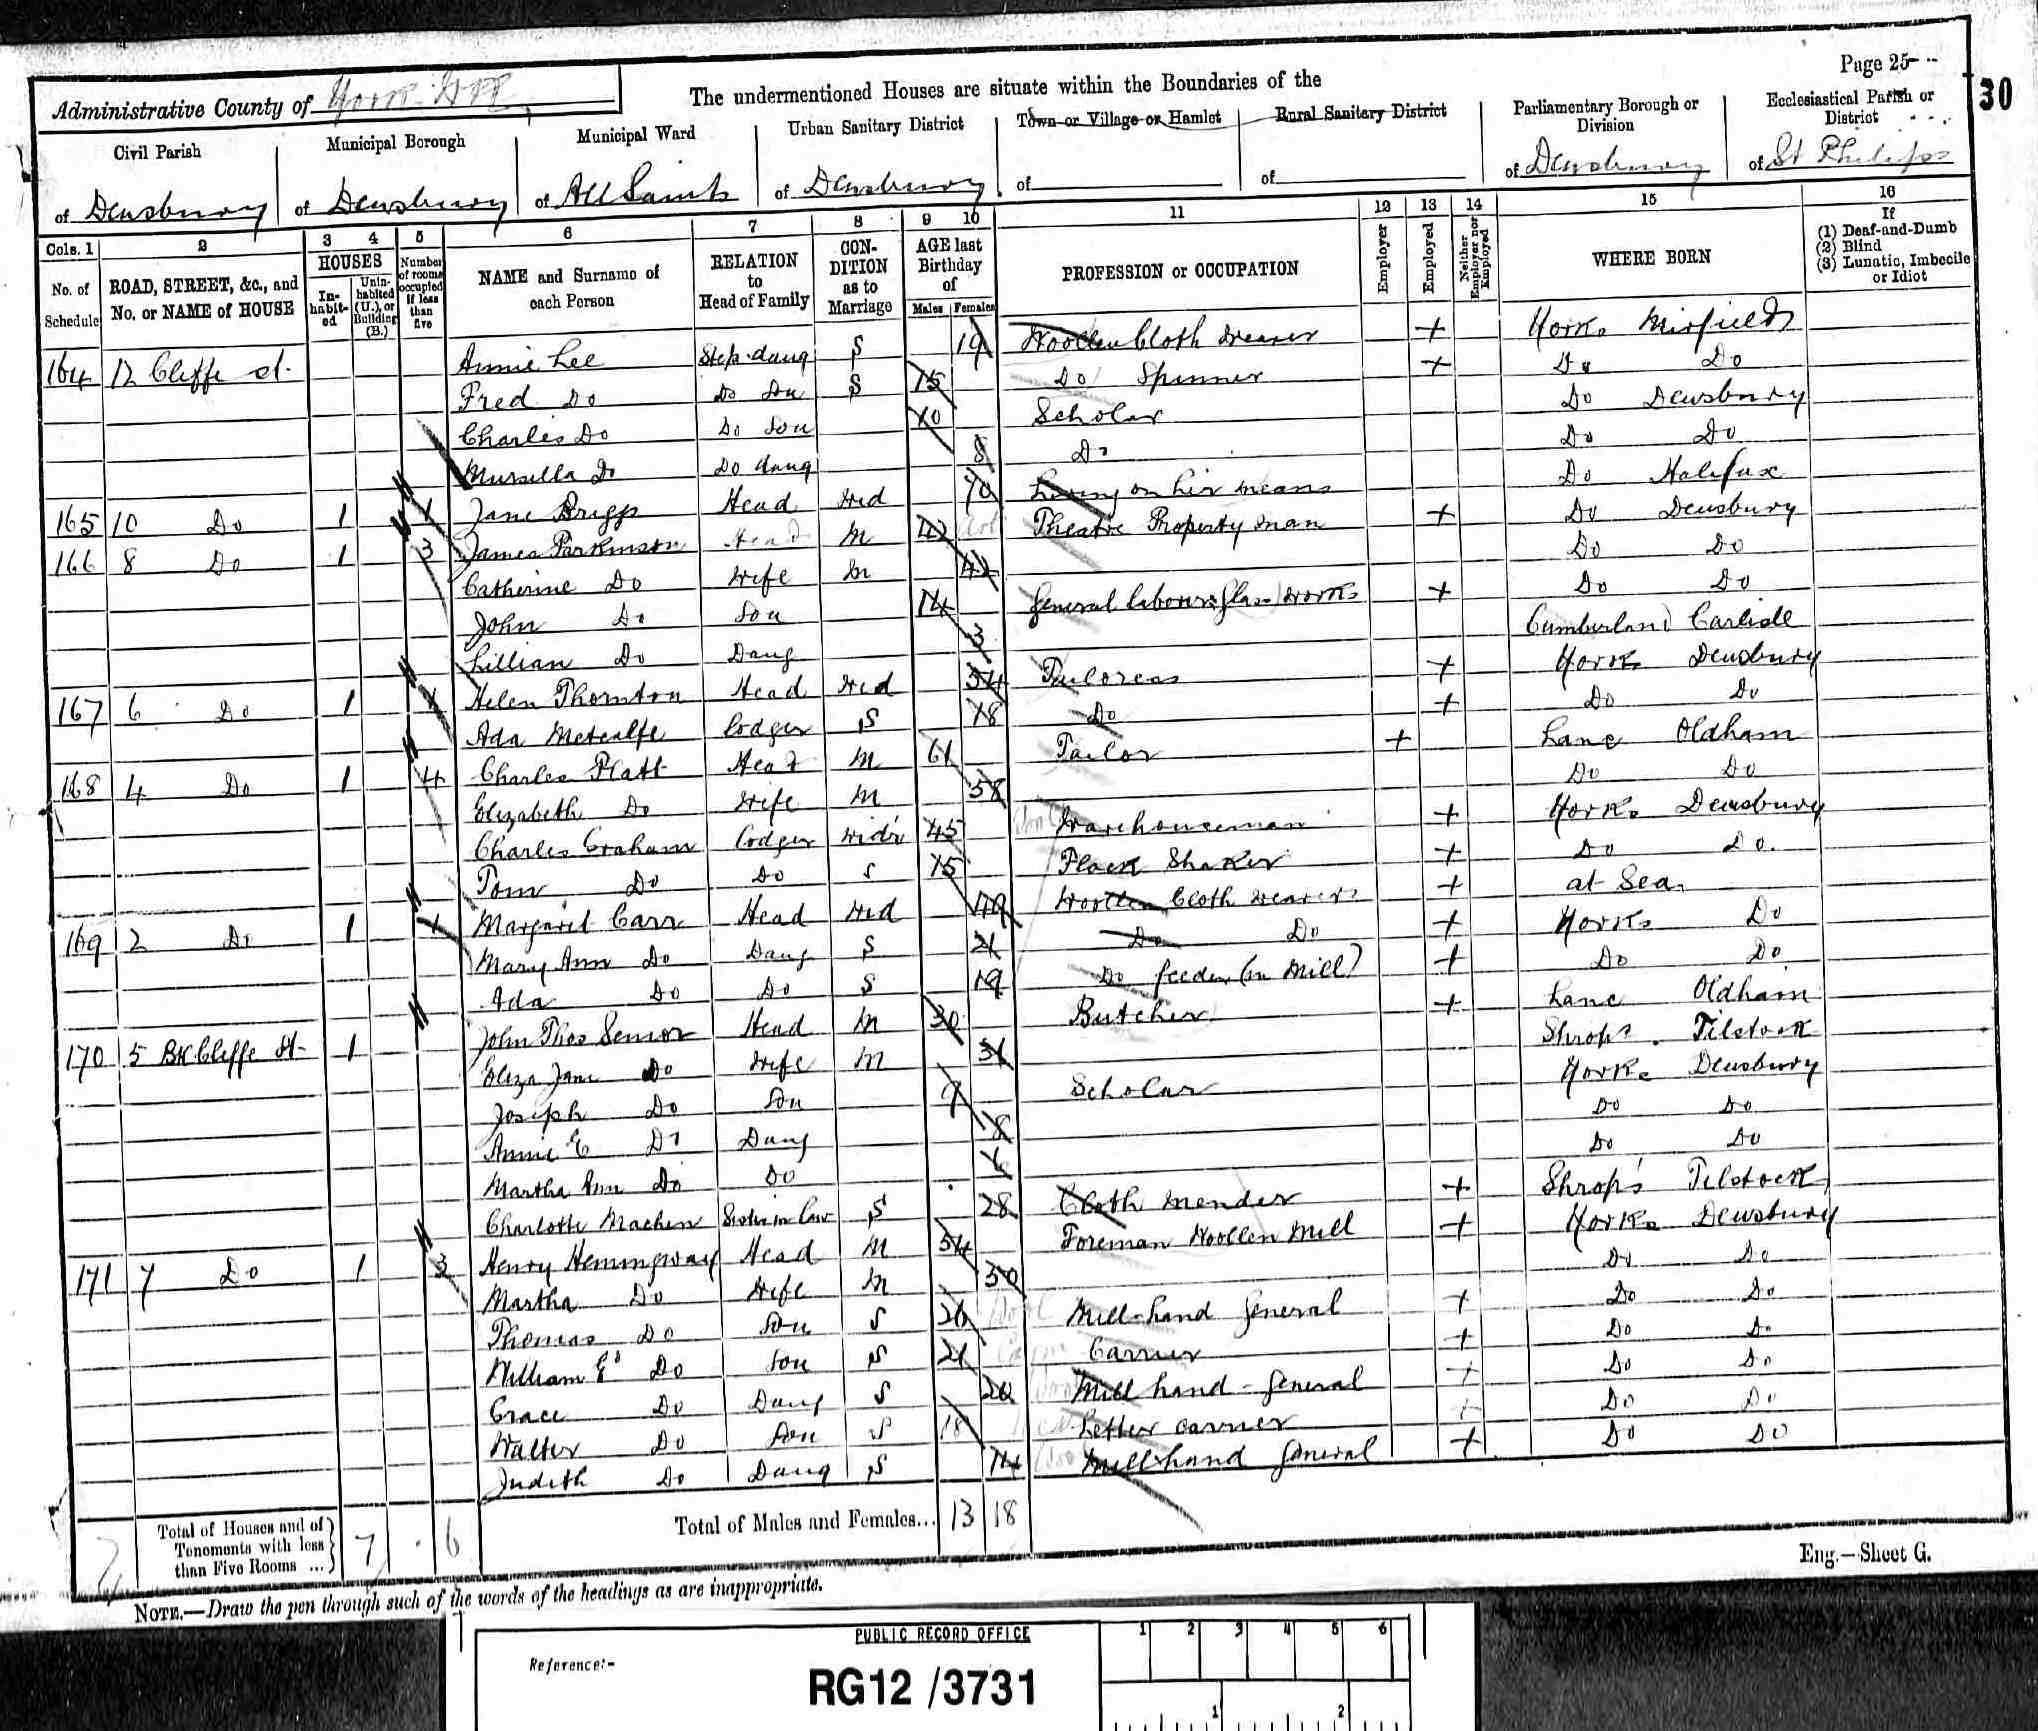 Page 25
30
Administrative County of York W R
The undermentioned Houses are situate within the Boundaries of the
Civil Parish of Dewsbury
Municipal Borough of Dewsbury
Municipal Ward of All Saints
Urban Sanitary District of Dewsbury
Town or Village or Hamlet of
Rural Sanitary District of
Parliamentary Borough or Division of Dewsbury
Ecclesiastical Parish or District of St Philips
Cols. 1 2 3 4 5 6 7 8 9 10 11 12 13 14 15 16
No. of Schedule
ROAD, STREET, &c., and No. or NAME of HOUSE
HOUSES
Inhabited
Uninhabited (U.), or Building (B.)
Number of rooms occupied if less than five
NAME and Surname of each Person
RELATION to Head of Family
CONDITION as to Marriage
AGE last Birthday of
Males Females
PROFESSION or OCCUPATION
Employer
Employed
Neither Employer nor Employed
WHERE BORN
If (1) Deaf-and-Dumb (2) Blind (3) Lunatic, Imbecile or Idiot
164 12 Cliffe St. Annie Lee Step-daug S 19 Woollen Cloth weaver + Yorks Mirfield
Fred Do Do Son S 15 Do Spinner + Do Do
Charles Do Do Son 10 Scholar Do Dewsbury
Do Do daug 8 Do Do Do
165 10 Do 1 1 Jane Briggs Head Wid 70 Living on her means Do Halifax
166 8 Do 1 3 James Parkinson Head M 42 Theatre Property man + Do Dewsbury
Catherine Do Wife M 42 Do Do
John Do Son 14 General labourer Glass works + Do Do
Lillian Do Daug 3 Cumberland Carlisle
167 6 Do 1 1 Helen Thornton Head Wid 54 Tailoress + Yorks Dewsbury
Ada Metcalfe Lodger S 18 Do + Do Do
168 4 Do 1 4 Charles Platt Head M 61 Tailor + Lanc Oldham
Elizabeth Do Wife M 58 Do Do
Charles Graham Lodger Widr 45 Warehouseman + Yorks Dewsbury
Tom Do Do S 15 Flock Shaker + Do Do.
169 2 Do 1 1 Margaret Carr Head Wid 49 Woollen Cloth weaver + at Sea.
Mary Ann Do Daug S 21 Do Do + Yorks Do
Ada Do Do S 19 Do feeder (in Mill) + Do Do
170 5 Bk Cliffe St 1 John Thos Senior Head M 30 Butcher + Lanc Oldham
Eliza Jane Do Wife M 31 Shrops. Tilstock
Joseph Do Son 9 Scholar Yorks Dewsbury
Annie E Do Daug 8 Do Do
Martha Ann Do Do Do Do
Charlotte Machin Sister in law S 28 Cloth mender + Shrops Tilstock
171 7 Do 1 3 Henry Hemingway Head M 54 Foreman Woollen Mill + Yorks Dewsbury
Martha Do Wife M 50 Do Do
Thomas Do Son S 26 Mill-hand General + Do Do
William Ed Do Son S 21 Carrier + Do Do
Grace Do Daug S 20 Mill hand - General + Do Do
Walter Do Son S 18 Letter carrier + Do Do
Judith Do Daug S 14 Mill-hand General + Do Do
Total of Houses and of Tenements with less than Five Rooms ... 7 6
Total of Males and Females... 13 18
Eng.—Sheet G.
NOTE.—Draw the pen through such of the words of the headings as are inappropriate.
PUBLIC RECORD OFFICE
Reference:-
RG12 /3731
1 2 3 4 5 6
1 2